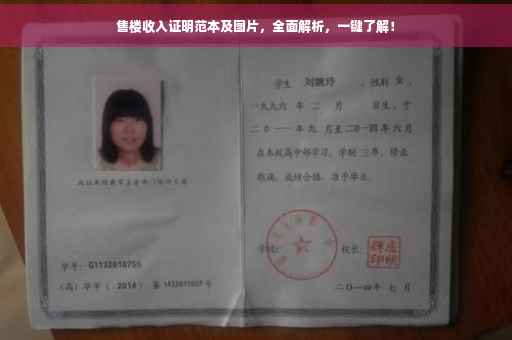 售楼收入证明范本及图片，全面解析，一键了解！
学生 刘婉玲 ，性别 女 ，
一九九六 年 二 月 日生，于
二〇一一 年 九 月至 二〇一四 年 六 月
在本校高中部学习，学制 三 年，修业
期满，成绩合格，准予毕业。
学号：G1132010755
（高）毕字（ 2014 ）第 1432011027 号
学校：
校长：
二〇一四年 七 月